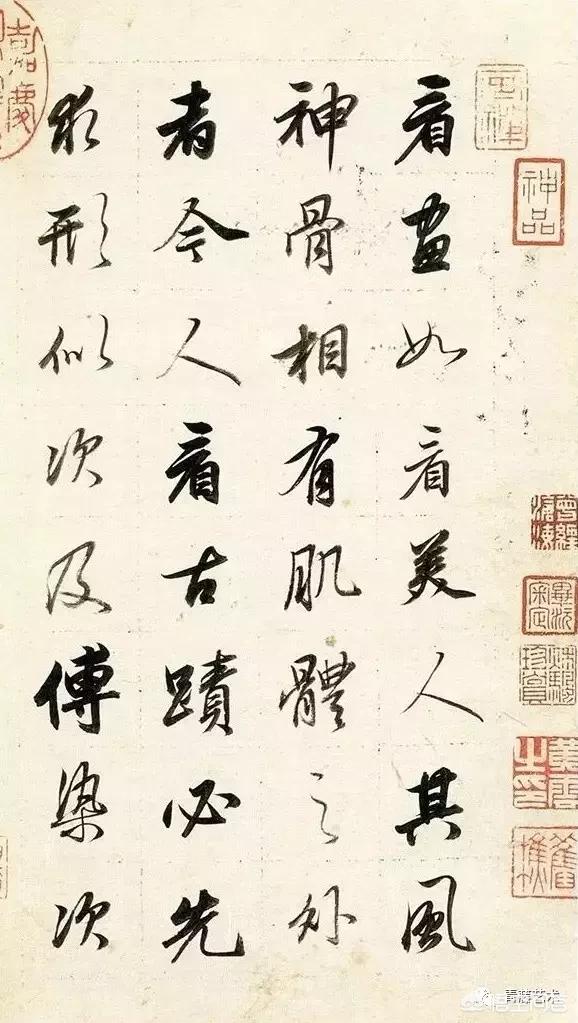 看畫如看美人其風
神骨相有肌體之外
者今人看古蹟必先
求形似次及傅染次
神品
畢沅審定
青藤艺术